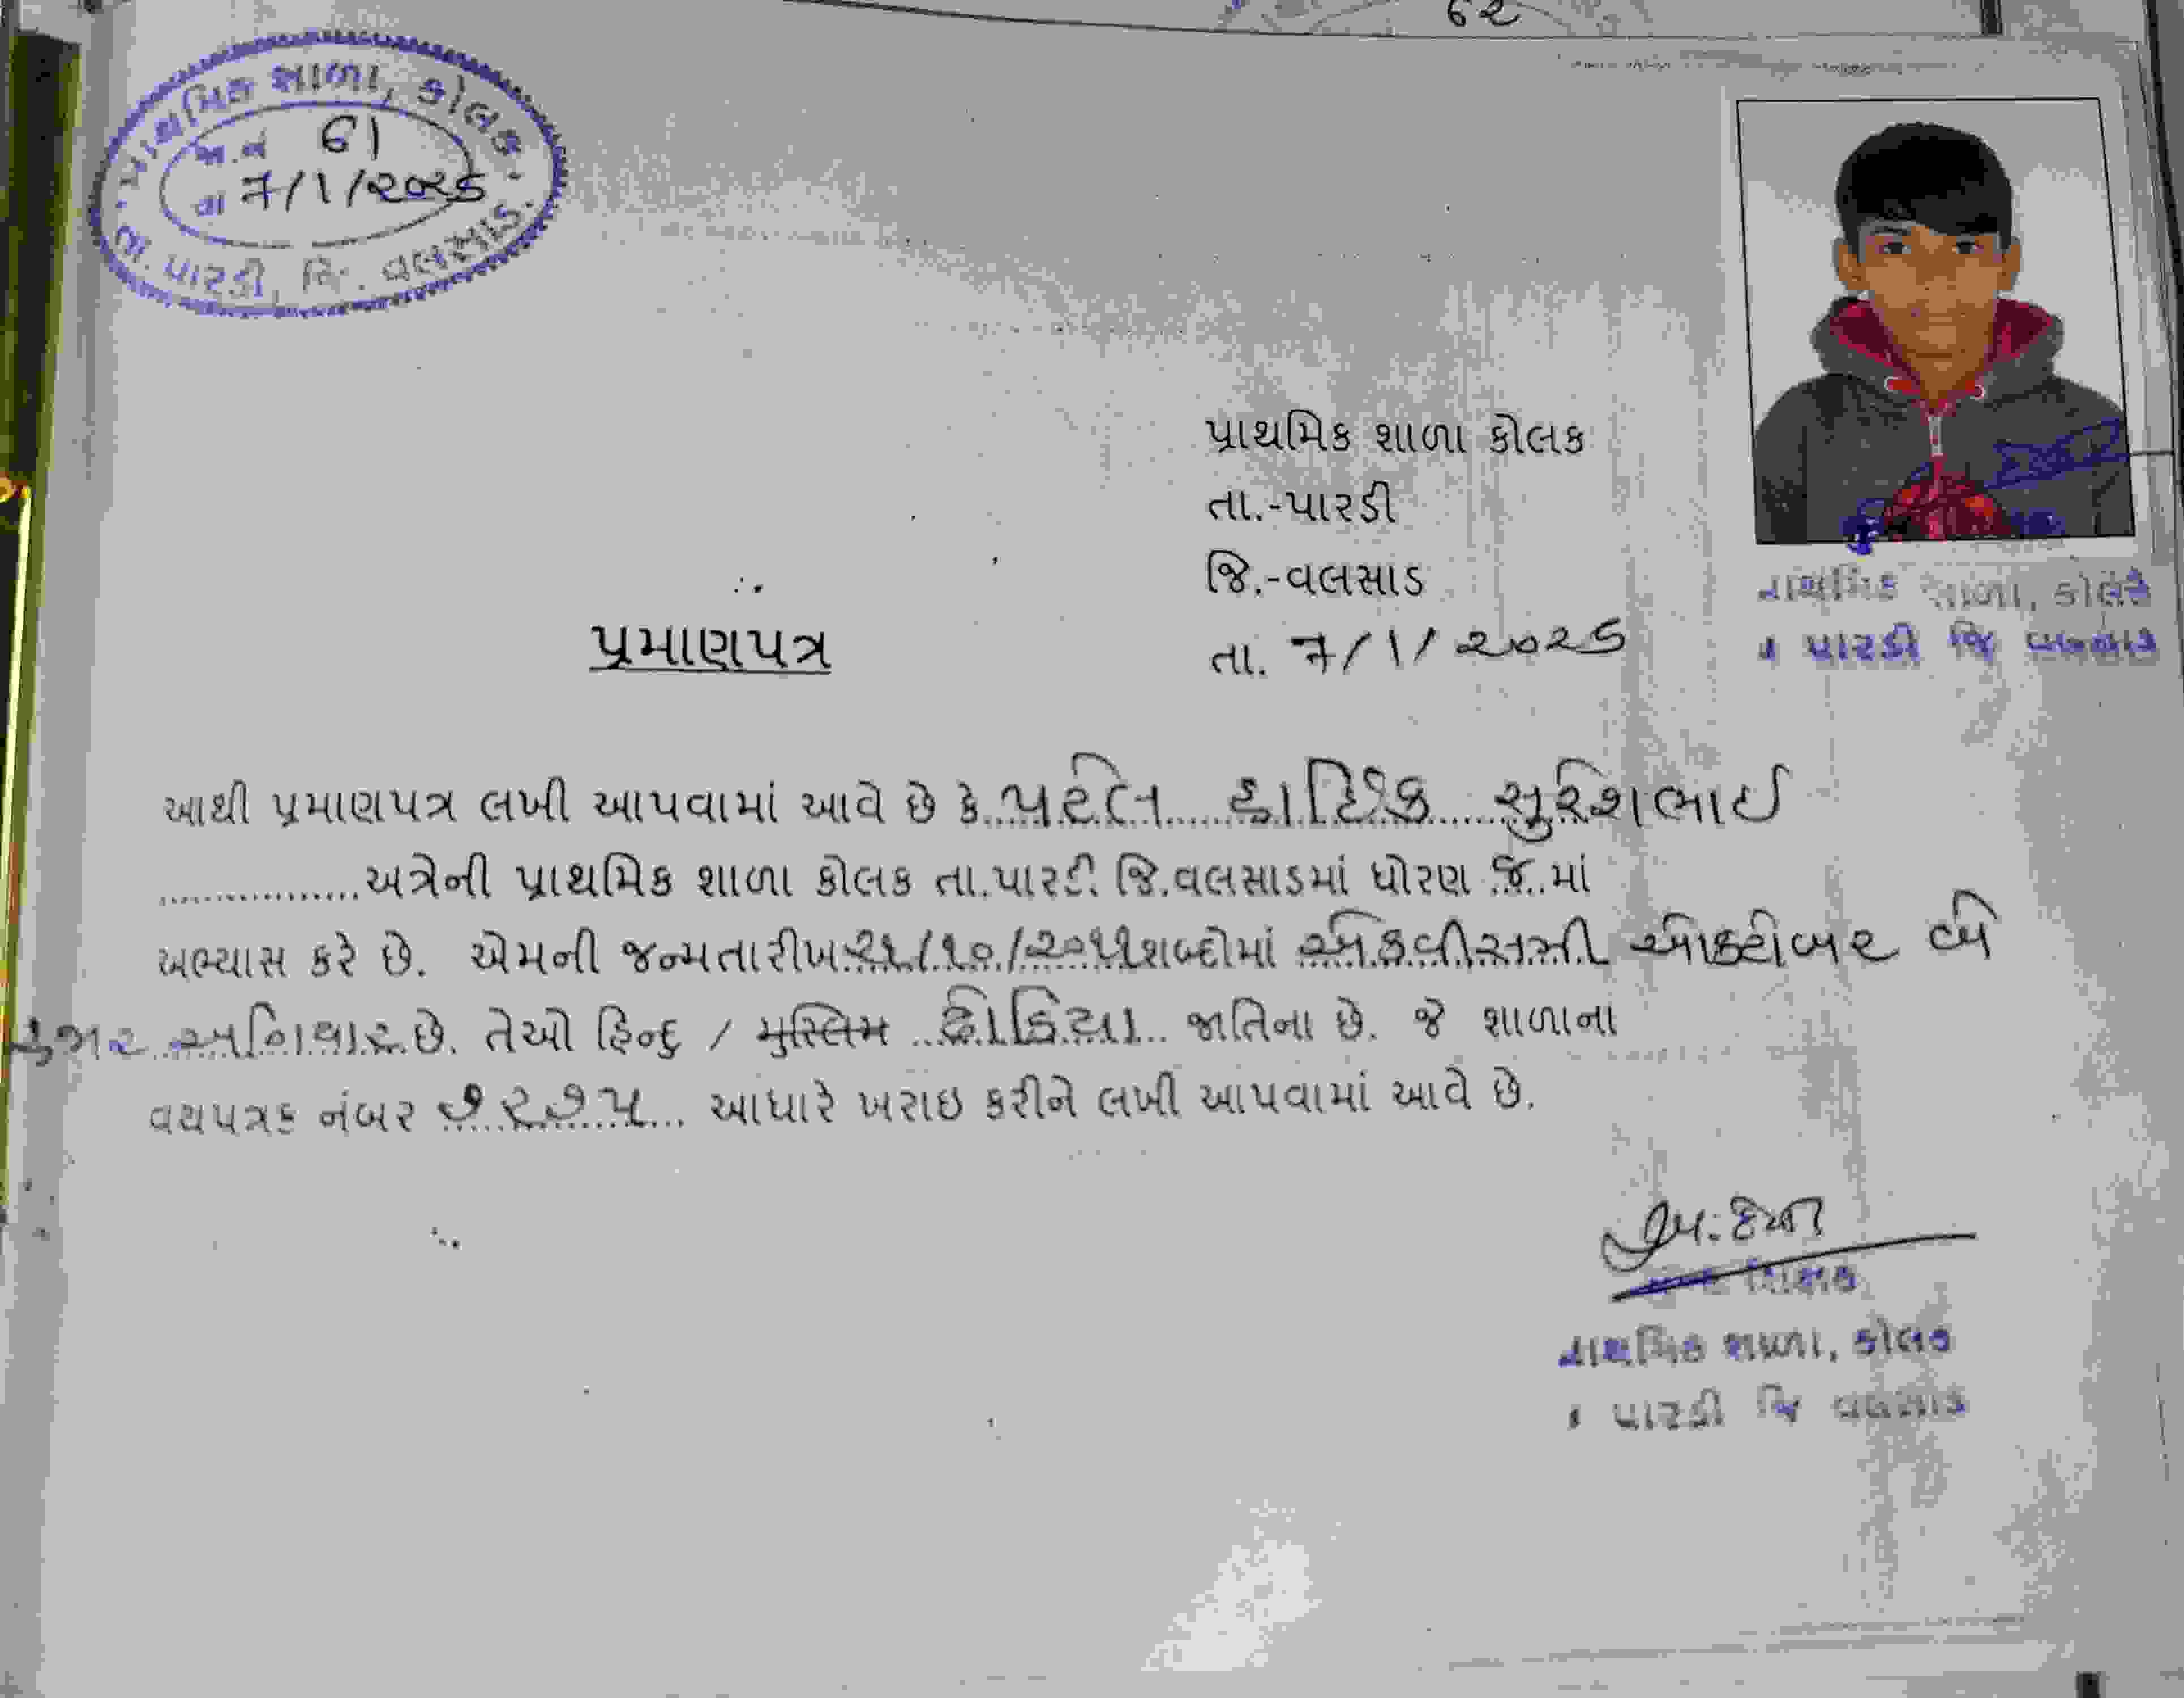 ૬૨
પ્રાથમિક શાળા, કોલક.
જા.નં ૬૧
તા ૭/૧/૨૦૨૬
તા. પારડી, જિ. વલસાડ.
પ્રાથમિક શાળા કોલક
તા.-પારડી
જિ.-વલસાડ
તા. ૭/૧/૨૦૨૬
પ્રાથમિક શાળા, કોલક
પારડી જિ વલસાડ
પ્રમાણપત્ર
આથી પ્રમાણપત્ર લખી આપવામાં આવે છે કે પટેલ હાર્દિક સુરેશભાઈ
અત્રેની પ્રાથમિક શાળા કોલક તા.પારડી જિ.વલસાડમાં ધોરણ માં
અભ્યાસ કરે છે. એમની જન્મતારીખ ૨૧/૧૦/૨૦૧૧ શબ્દોમાં એકવીસમી ઓક્ટોબર બે
હજાર અગિયાર છે. તેઓ હિન્દુ / મુસ્લિમ જાતિના છે. જે શાળાના
વયપત્રક નંબર ૭૨૭૫ આધારે ખરાઇ કરીને લખી આપવામાં આવે છે.
શિક્ષક
પ્રાથમિક શાળા, કોલક
પારડી જિ વલસાડ